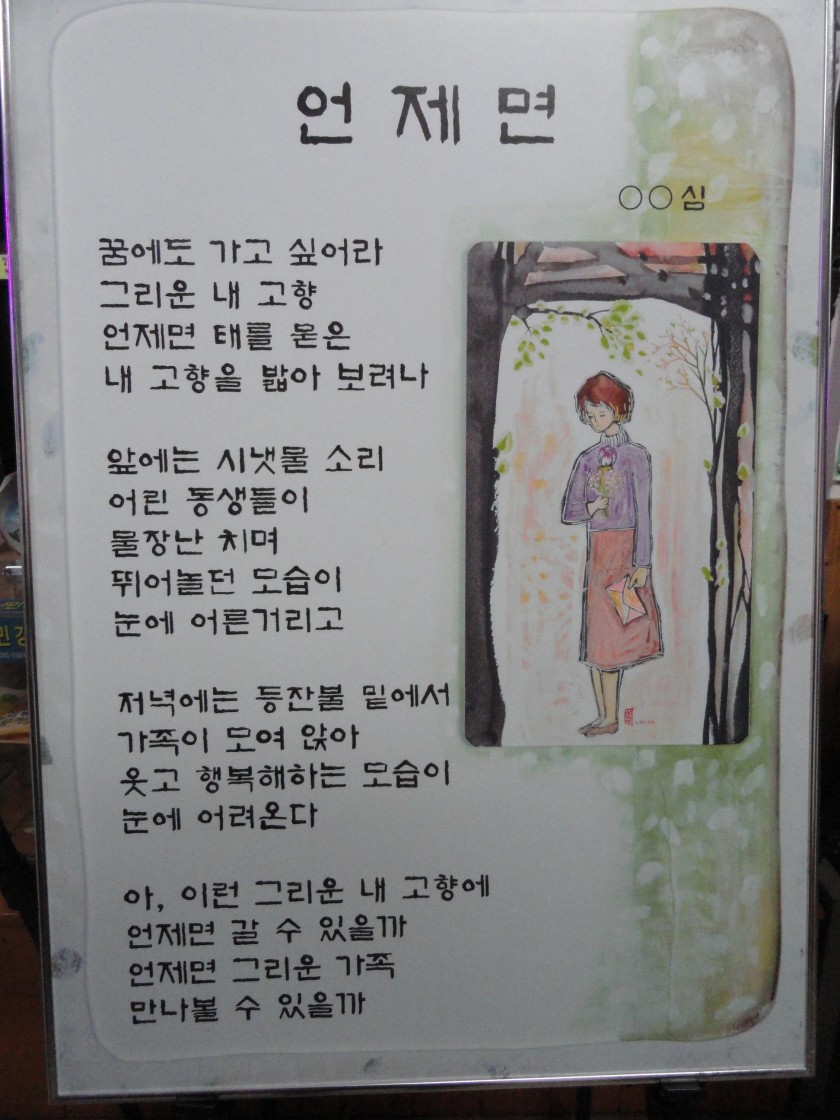 언제면
○○심
꿈에도 가고 싶어라
그리운 내 고향
언제면 태를 묻은
내 고향을 밟아 보려나
앞에는 시냇물 소리
어린 동생들이
물장난 치며
뛰어놀던 모습이
눈에 어른거리고
저녁에는 등잔불 밑에서
가족이 모여 앉아
웃고 행복해하는 모습이
눈에 어려온다
아, 이런 그리운 내 고향에
언제면 갈 수 있을까
언제면 그리운 가족
만나볼 수 있을까